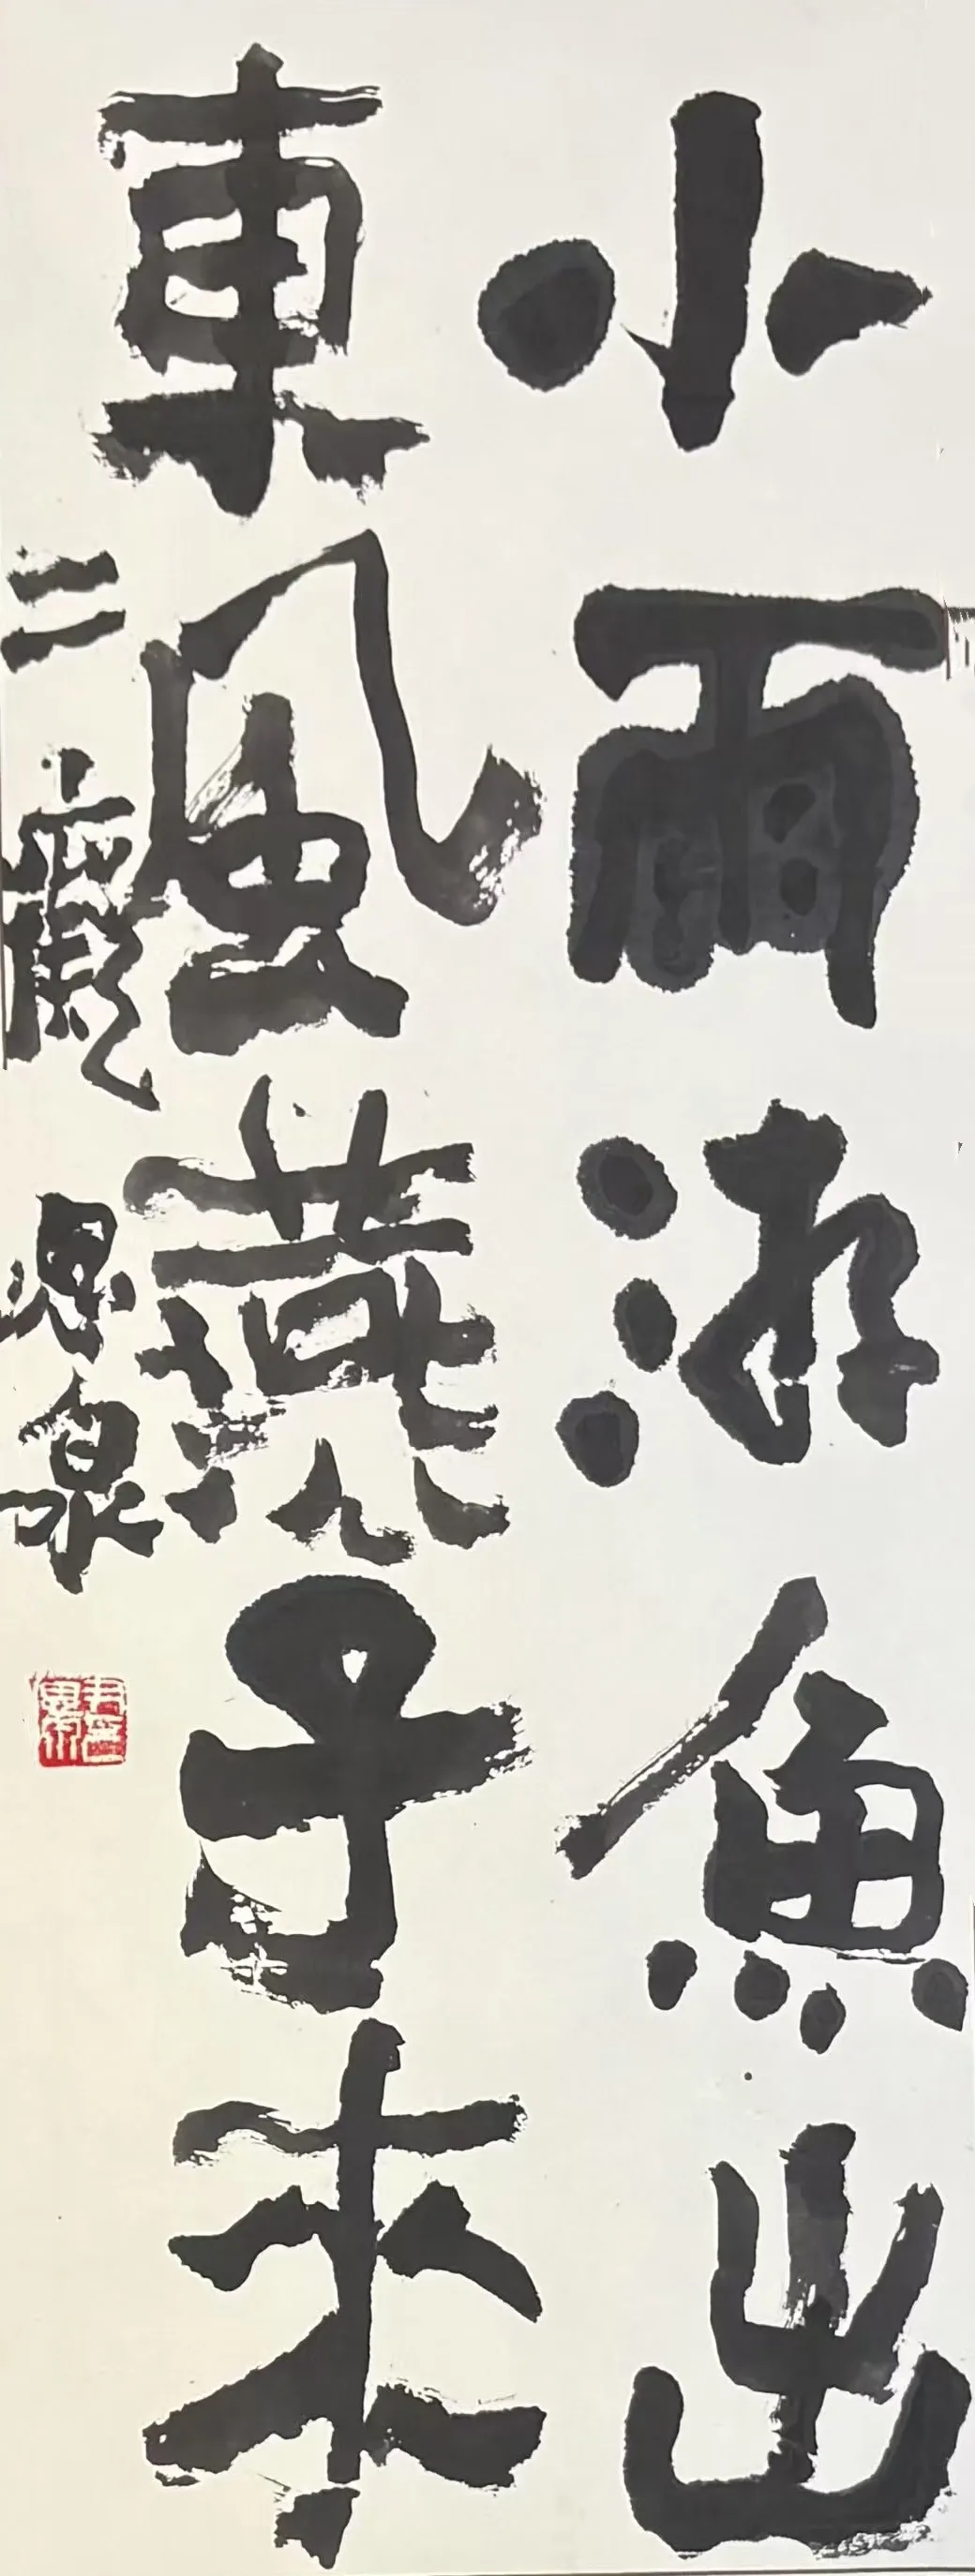 小雨游魚出
東風燕子來
二癡 思泉